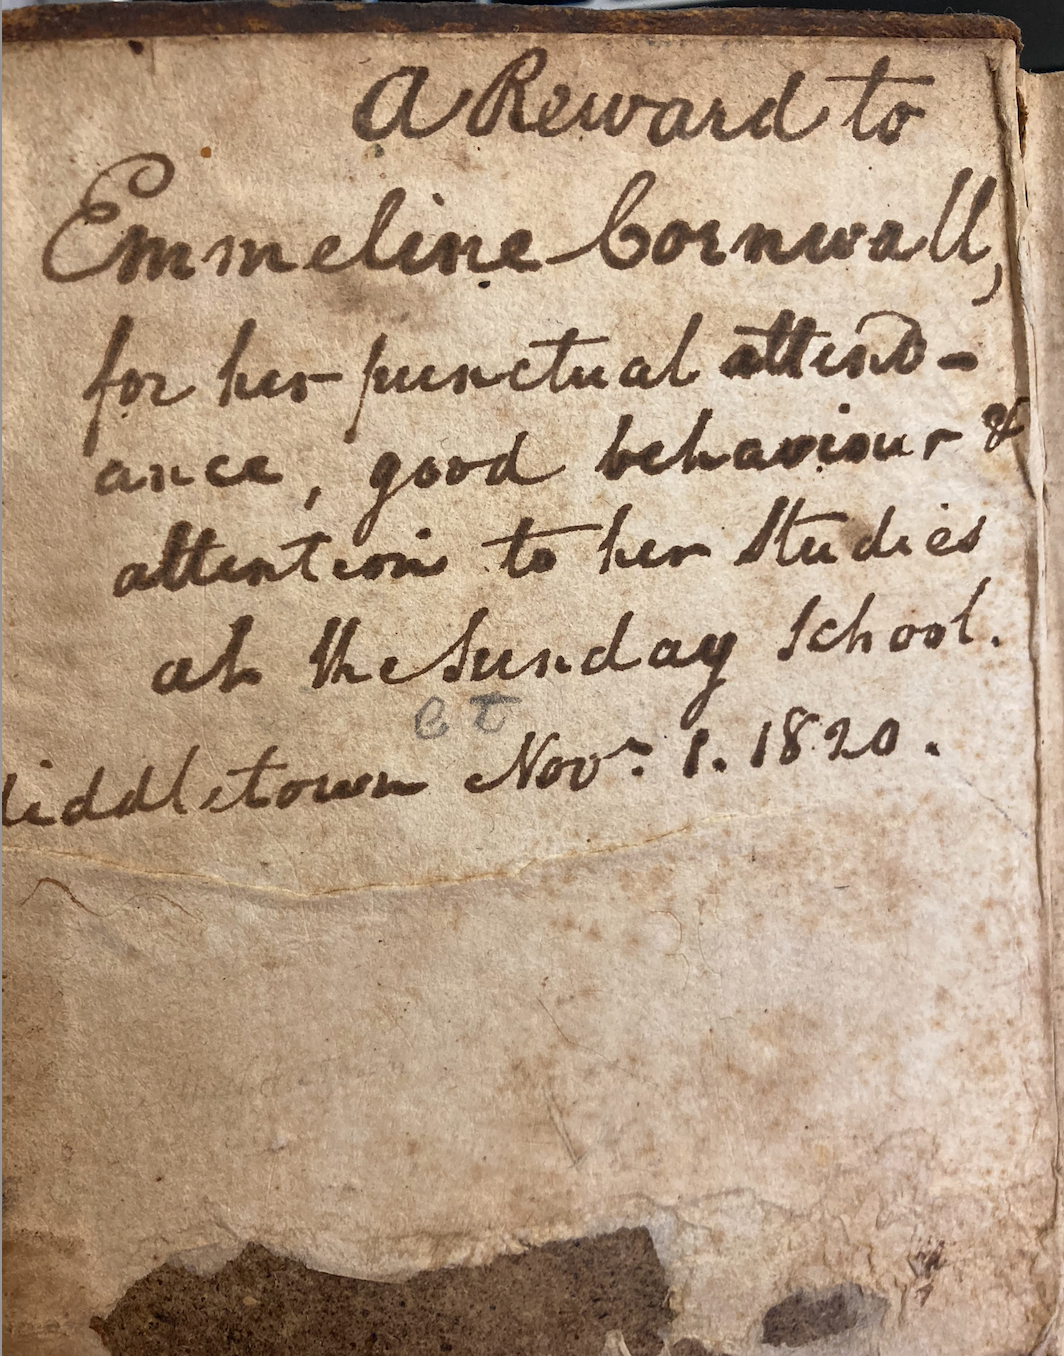 A Reward to
Emmeline Cornwall,
for her punctual attend-
ance, good behaviour &
attention to her Studies
at the Sunday School.
et
iddletown Novr. 1. 1820.